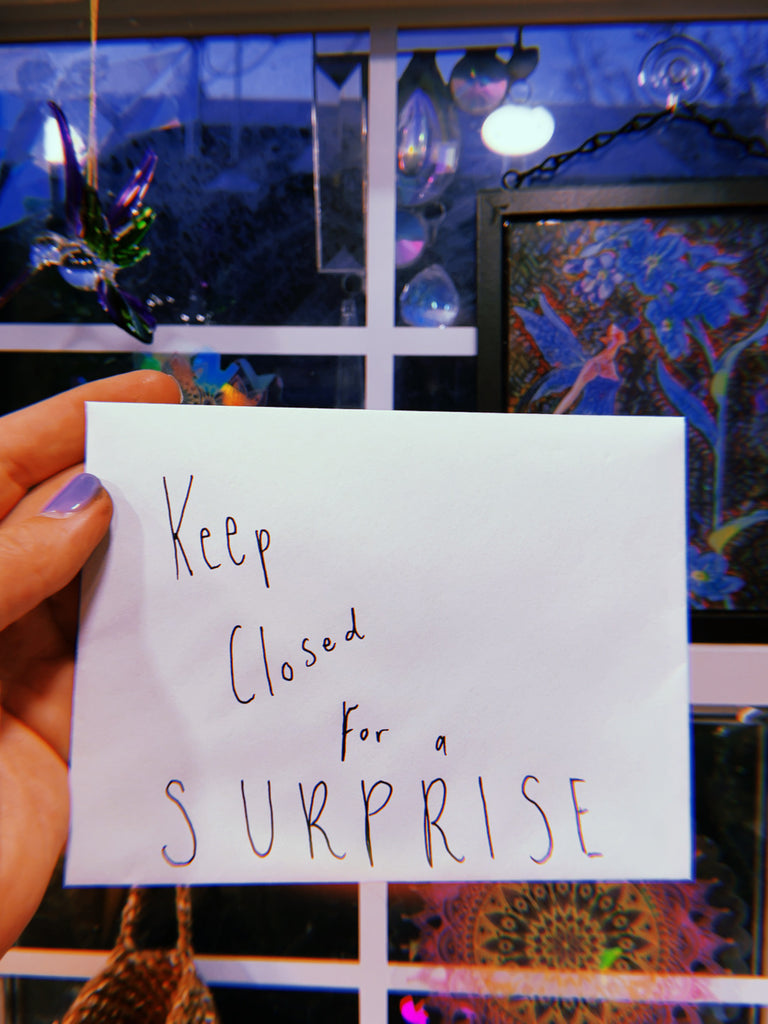 Keep
Closed
For a
SURPRISE